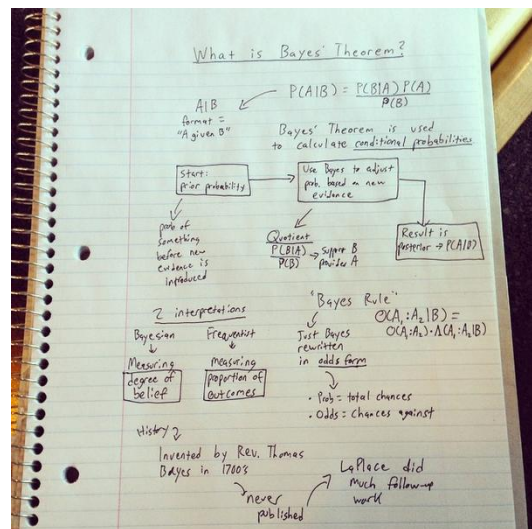 What is Bayes' Theorem?
P(A|B) = P(B|A) P(A)
P(B)
A|B
format =
"A given B"
Bayes' Theorem is used
to calculate conditional probabilities
Start:
prior probability
Use Bayes to adjust
prob. based on new
evidence
Result is
posterior → P(A|B)
prob of
something
before new
evidence is
introduced
Quotient
P(B|A)
P(B)
→ Support B
provides A
2 interpretations
Bayesian
Measuring
degree of
belief
Frequentist
measuring
proportion of
outcomes
"Bayes Rule"
Just Bayes
rewritten
in odds form
O(A₁:A₂|B) =
O(A₁:A₂)·Λ(A₁:A₂|B)
• Prob = total chances
• Odds = chances against
History
Invented by Rev. Thomas
Bayes in 1700's
never
published
LaPlace did
much follow-up
work